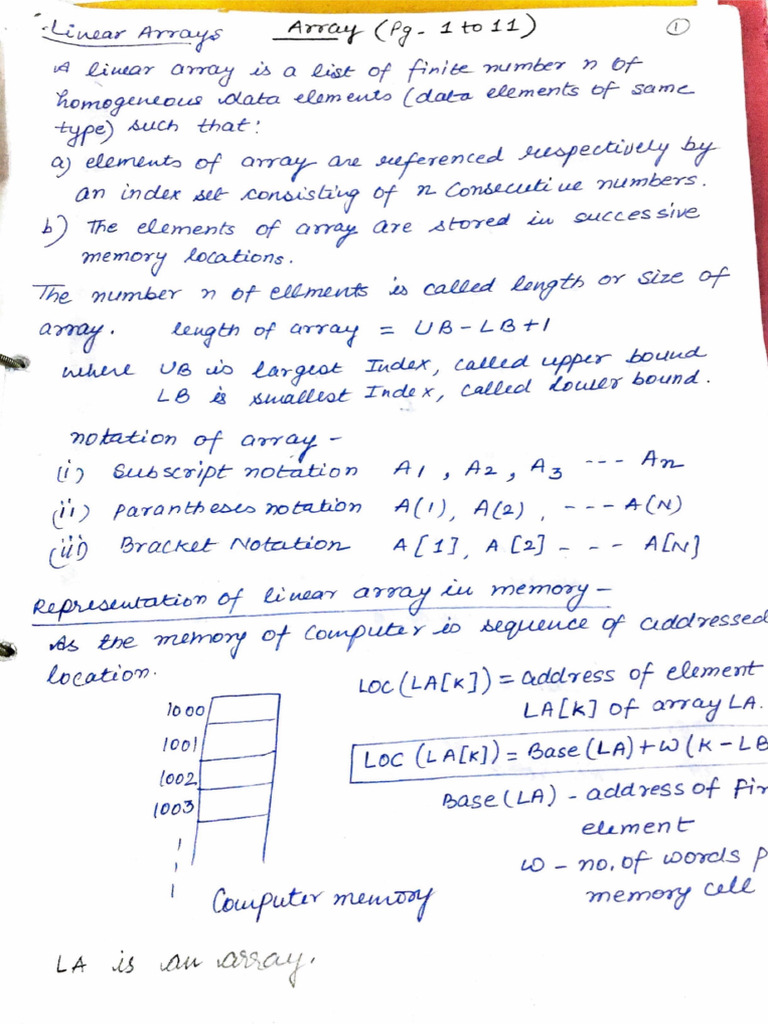 Linear Arrays Array (Pg. 1 to 11) 1
A linear array is a list of finite number n of
homogeneous data elements (data elements of same
type) such that:
a) elements of array are referenced respectively by
an index set consisting of n Consecutive numbers.
b) The elements of array are stored in successive
memory locations.
The number n of ellments is called length or size of
array. length of array = UB-LB+1
where UB is largest Index, called upper bound
LB is smallest Index, called lower bound.
notation of array -
(i) Subscript notation A1, A2, A3 --- An
(ii) Parantheses notation A(1), A(2), --- A(N)
(iii) Bracket Notation A[1], A[2] - - - A[N]
Representation of linear array in memory -
As the memory of Computer is sequence of addressed
location.
LOC(LA[K]) = address of element
LA[K] of array LA.
1000
1001
1002
1003
LOC (LA[K]) = Base(LA)+W(K-LB
Base(LA) - address of fir
element
w - no. of words p
memory cell
Computer memory
LA is an array.